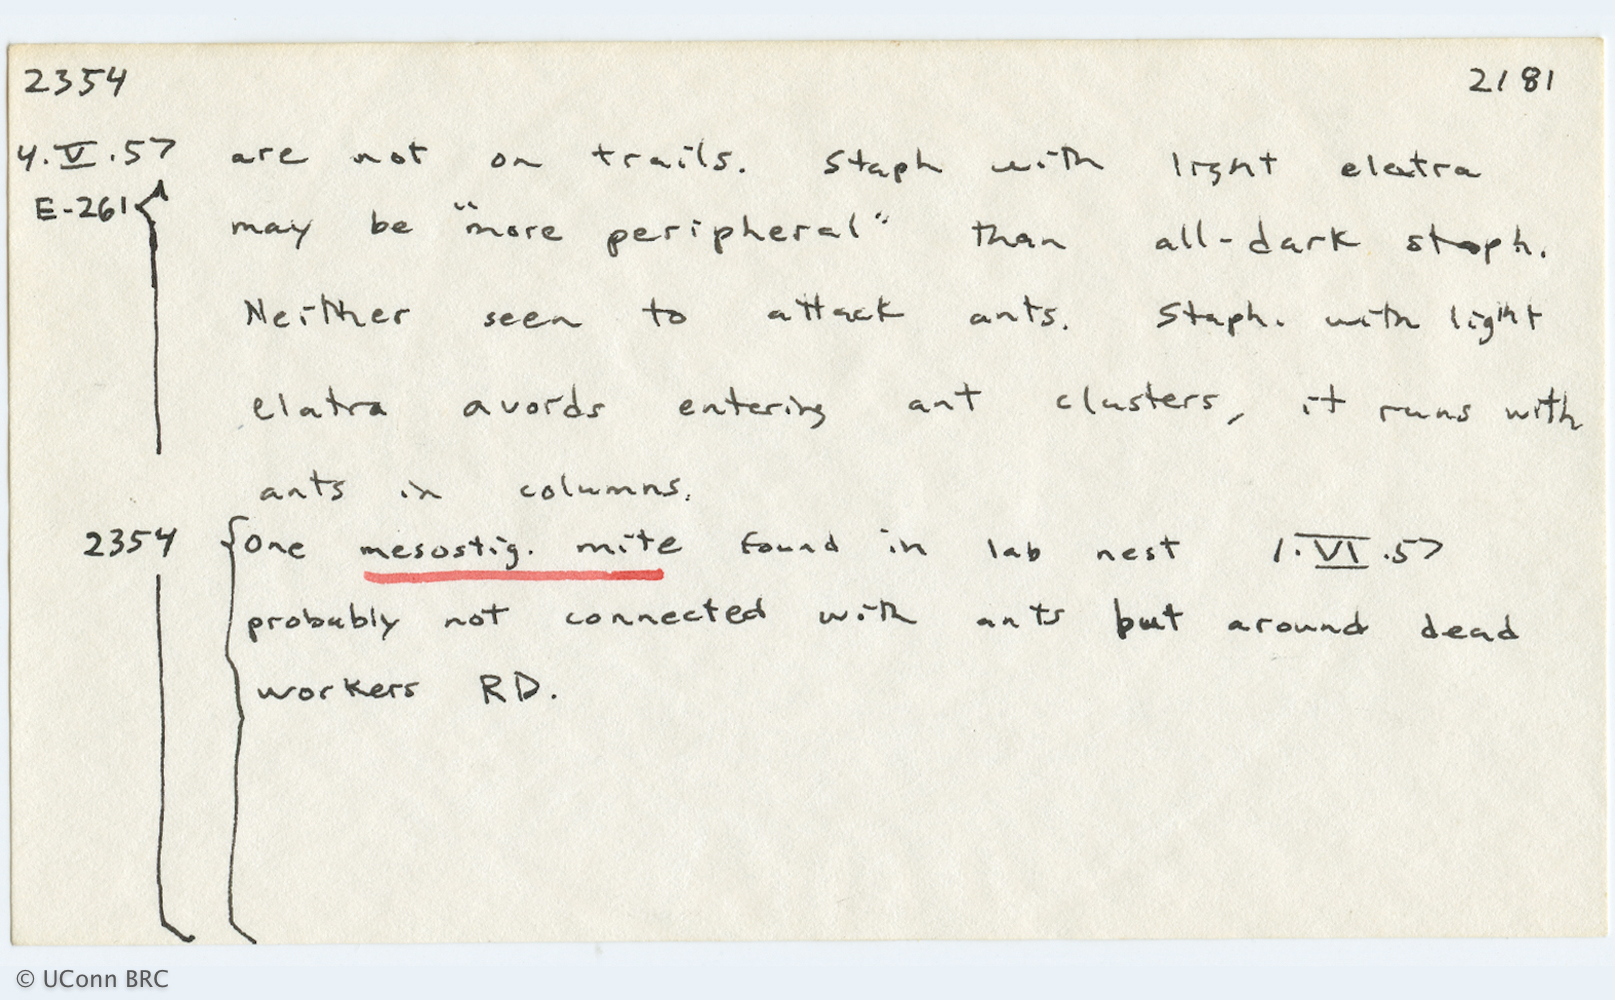 2354 2181
4.V.57 are not on trails. Staph with light elatra
E-261 may be "more peripheral" than all-dark staph.
Neither seen to attack ants. Staph. with light
elatra avoids entering ant clusters, it runs with
ants in columns.
2354 One mesostig. mite found in lab nest 1.VI.57
probably not connected with ants but around dead
workers RD.
© UConn BRC